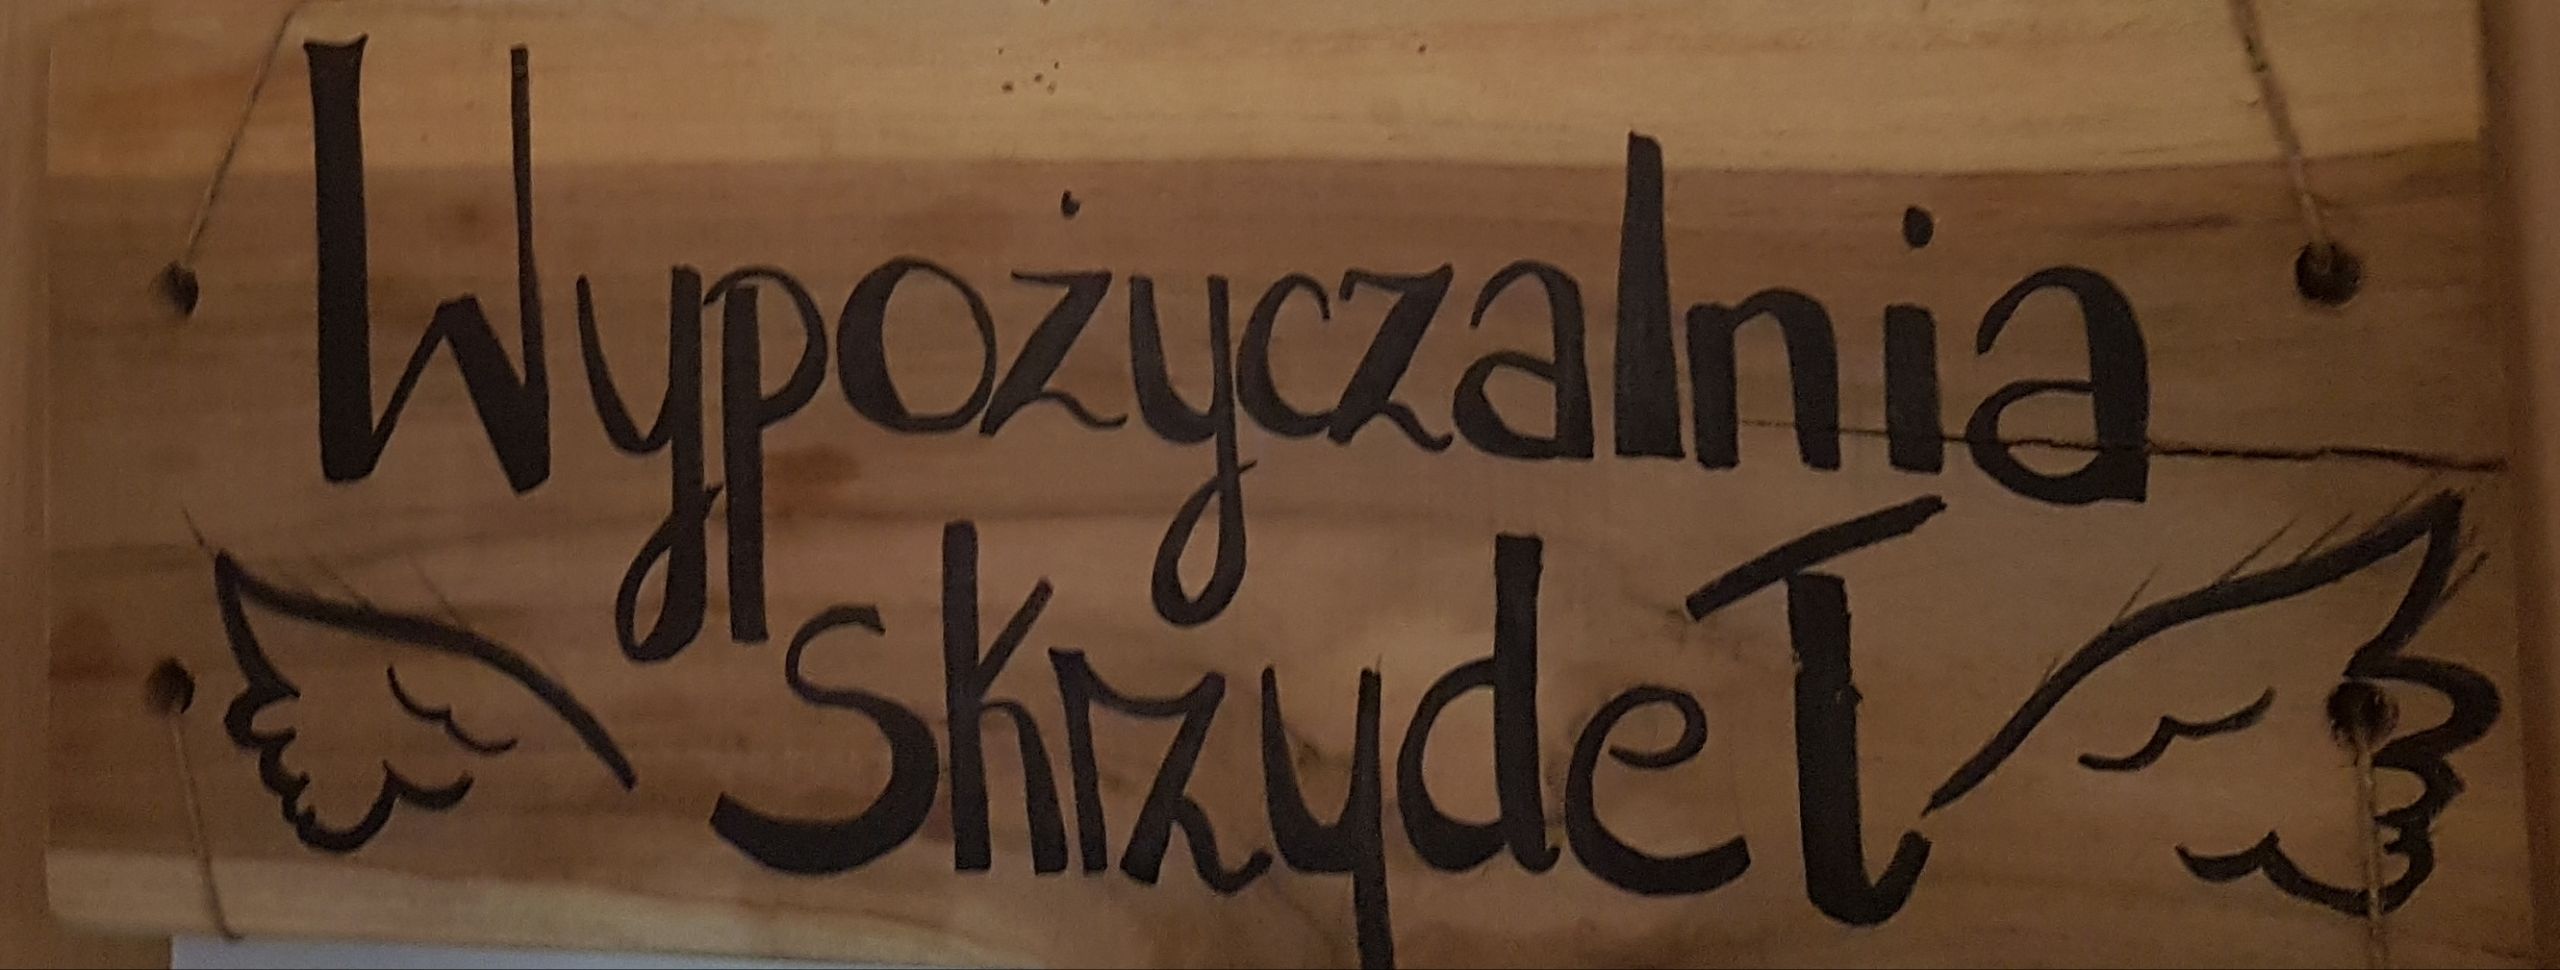 Wypożyczalnia
skrzydeł